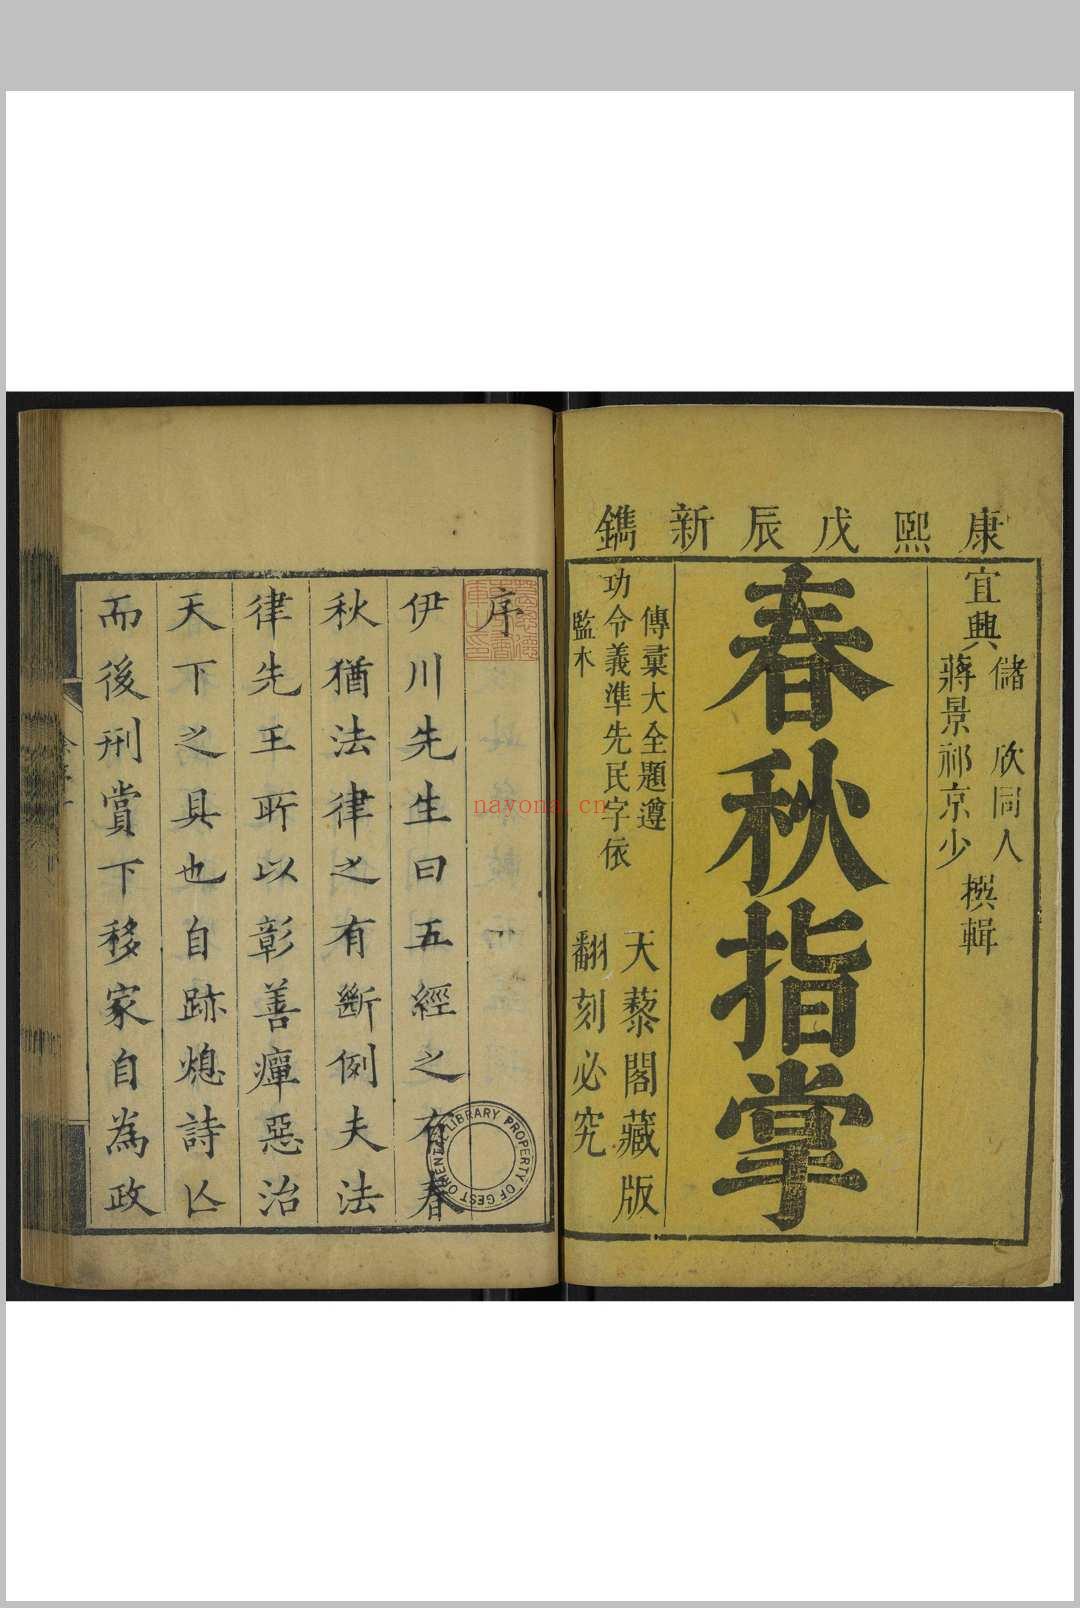 康熙戊辰新鐫
宜興
儲欣同人
蔣景祁京少
撰輯
春秋指掌
傳彚大全題遵
功令義準先民字依
監本
天藜閣藏版
翻刻必究
序
伊川先生曰五經之有春
秋猶法律之有斷例夫法
律先王所以彰善癉惡治
天下之具也自跡熄詩亾
而後刑賞下移家自為政
GEST ORIENTAL LIBRARY PROPERTY OF
nayona.cn